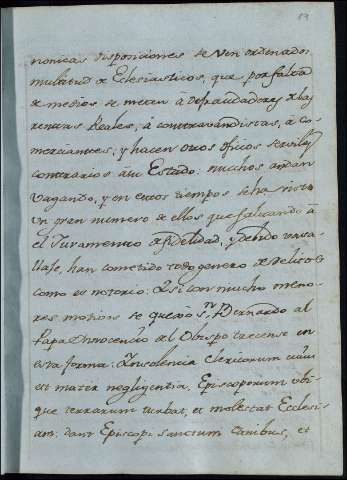 nonicas disposiciones se ven ordenados
multitud de Eclesiasticos, que por falta
de medios se meten à defraudadores de las
rentas Reales, à contravandistas, à co-
merciantes; y hacen otros oficios serviles
contrarios a su Estado: muchos andan
vagando, y en estos tiempos se ha visto
un gran numero de ellos que faltando à
el Juramento de fidelidad, y debido vasa-
llaje, han cometido todo genero de delitos
como es notorio: Y si con mucho meno-
res motivos se quejò Sn. Bernardo al
Papa Ynocencio del Obispo trecense en
esta forma: Ynsolencia Clericorum cuius
est mater negligentia, Episcoporum ubi-
que terrarum turbat, et molestat Eccles-
iam: dant Episcopi sanctum Canibus, et